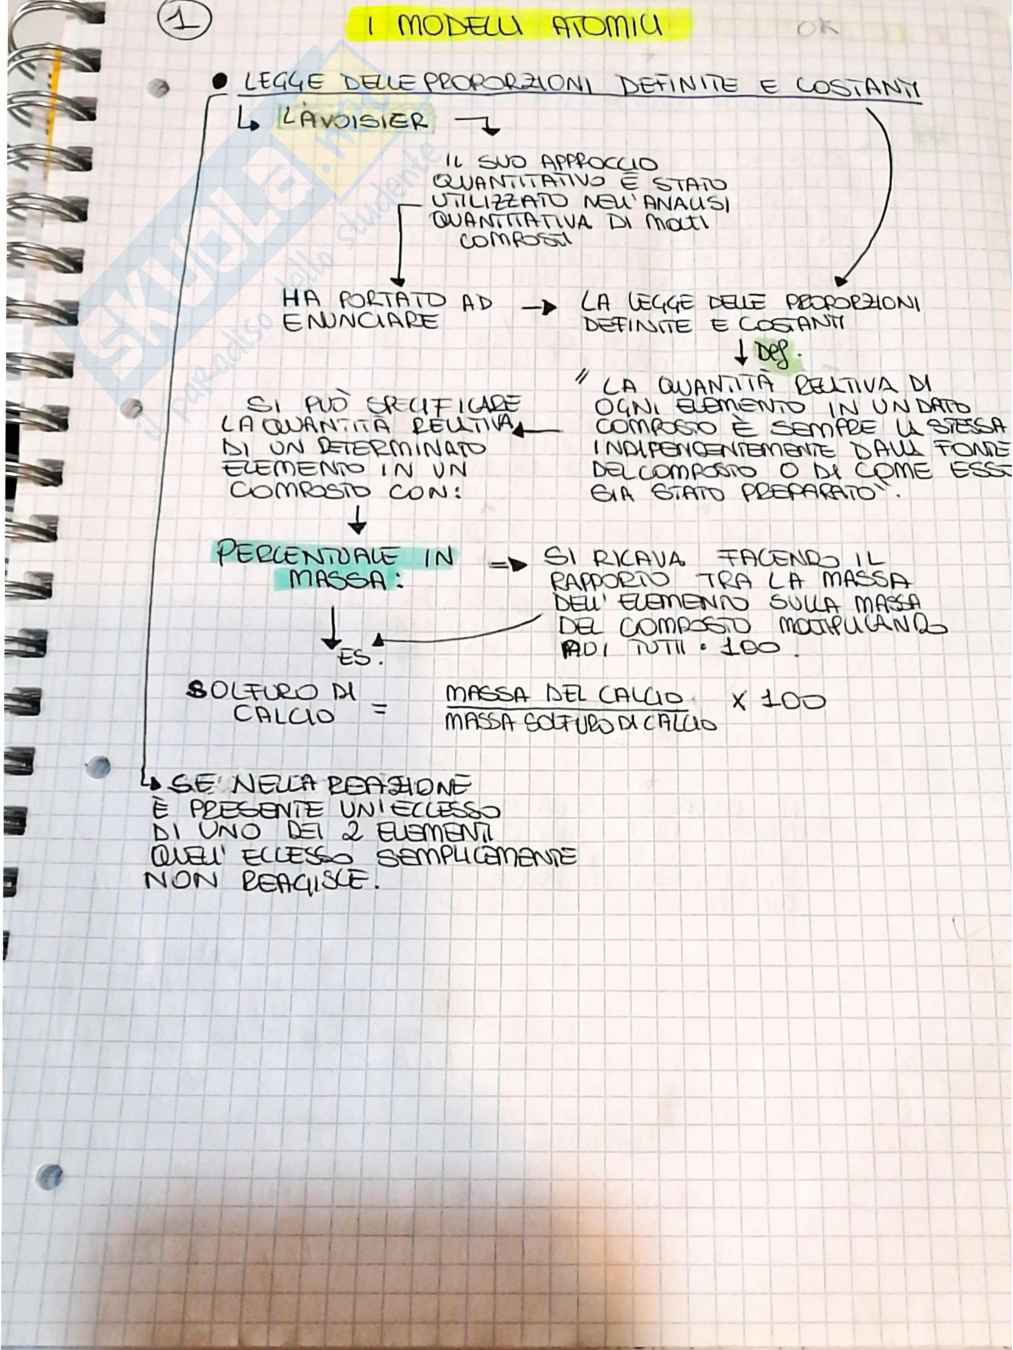 1
I MODELLI ATOMICI
OK
• LEGGE DELLE PROPORZIONI DEFINITE E COSTANTI
LAVOISIER
IL SUO APPROCCIO
QUANTITATIVO È STATO
UTILIZZATO NELL'ANALISI
QUANTITATIVA DI MOLTI
COMPOSTI
HA PORTATO AD
ENUNCIARE
LA LEGGE DELLE PROPORZIONI
DEFINITE E COSTANTI
Def.
" LA QUANTITÀ RELATIVA DI
OGNI ELEMENTO IN UN DATO
COMPOSTO È SEMPRE LA STESSA
INDIPENDENTEMENTE DALLA FONTE
DEL COMPOSTO O DI COME ESSO
SIA STATO PREPARATO".
SI PUÒ SPECIFICARE
LA QUANTITÀ RELATIVA
DI UN DETERMINATO
ELEMENTO IN UN
COMPOSTO CON:
PERCENTUALE IN
MASSA:
SI RICAVA FACENDO IL
RAPPORTO TRA LA MASSA
DELL'ELEMENTO SULLA MASSA
DEL COMPOSTO MOLTIPLICANDO
DI TUTTI • 100.
ES.
SOLFURO DI
CALCIO =
MASSA DEL CALCIO
MASSA SOLFURO DI CALCIO
X 100
SE NELLA REAZIONE
È PRESENTE UN'ECCESSO
DI UNO DEI 2 ELEMENTI
QUELL'ECCESSO SEMPLICEMENTE
NON REAGISCE.
SKUOLA.net
il paradiso dello studente